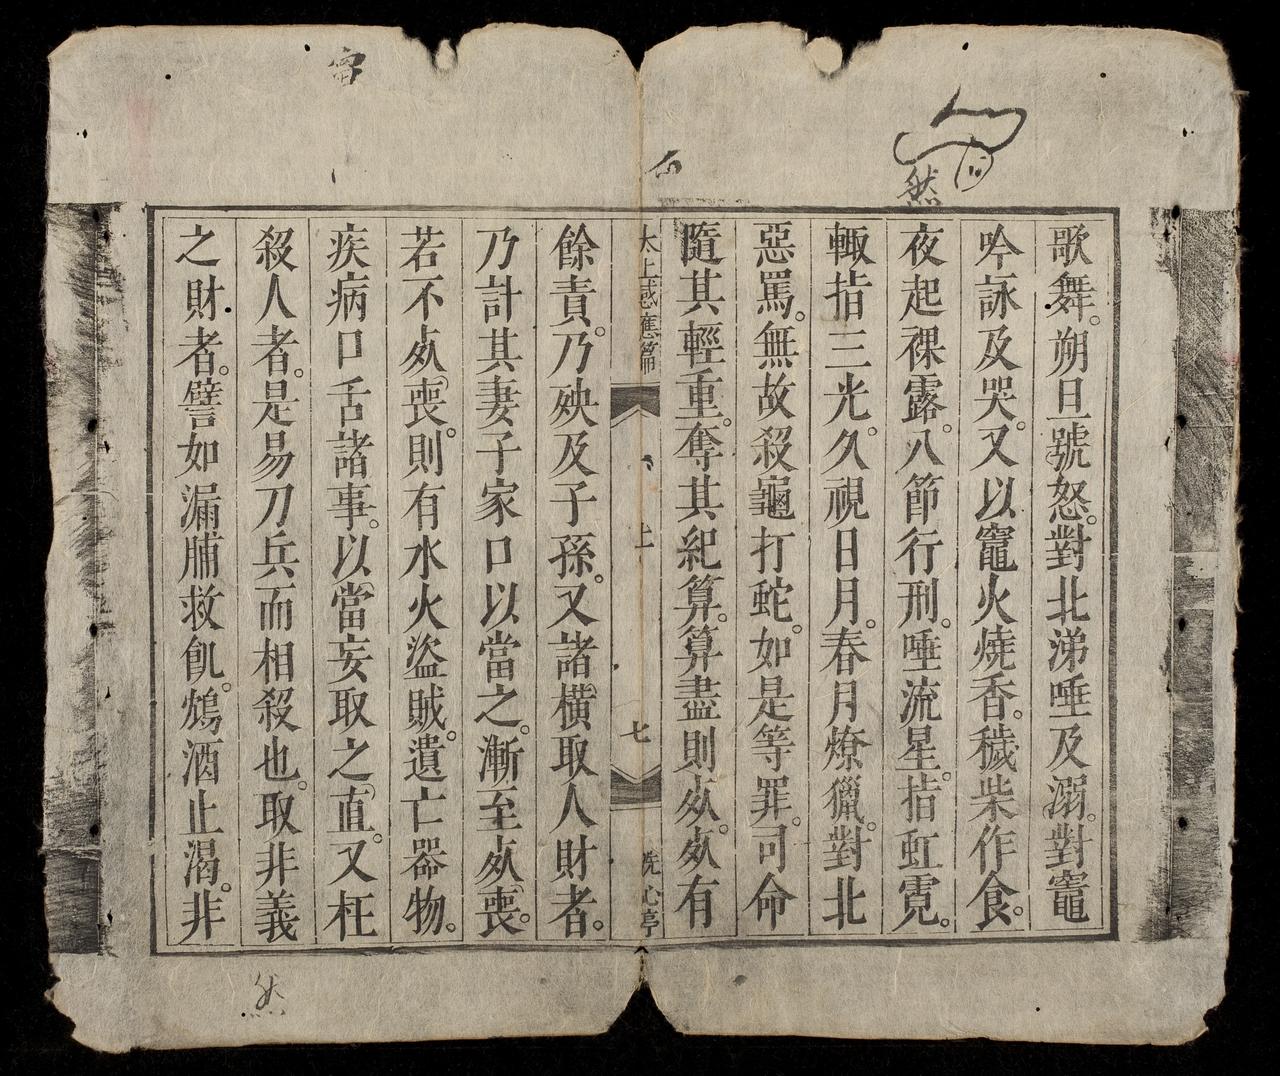 歌舞。朔旦號怒。對北涕唾及溺。對竈
吟詠及哭。又以竈火燒香。穢柴作食。
夜起裸露。八節行刑。唾流星。指虹霓。
輙指三光。久視日月。春月燎獵。對北
惡罵。無故殺龜打蛇。如是等罪。司命
隨其輕重。奪其紀算。算盡則死。死有
太上感應篇
上
七
洗心亭
餘責。乃殃及子孫。又諸橫取人財者。
乃計其妻子家口以當之。漸至死喪。
若不死喪。則有水火盜賊。遺亡器物。
疾病口舌諸事。以當妄取之直。又枉
殺人者。是易刀兵而相殺也。取非義
之財者。譬如漏脯救飢。鴆酒止渴。非
然
然